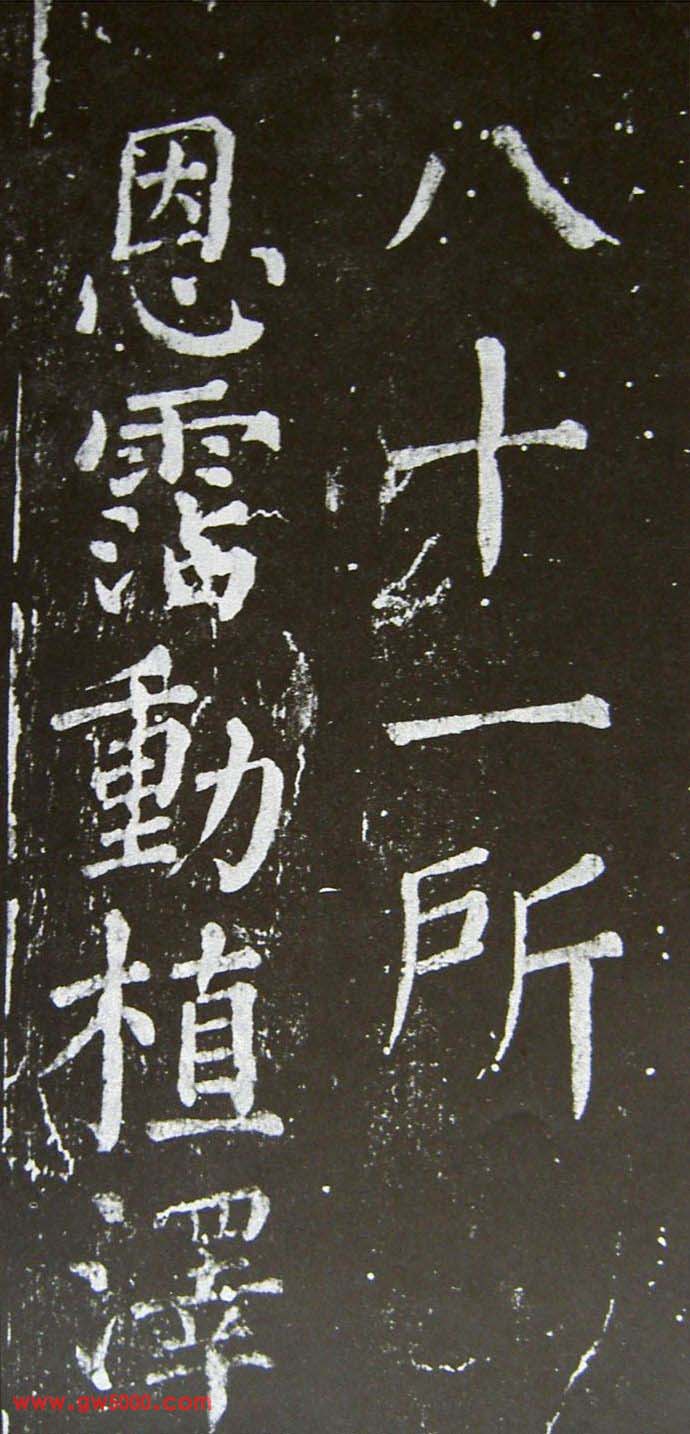 八十一所
恩霑動植澤
www.gw5000.com